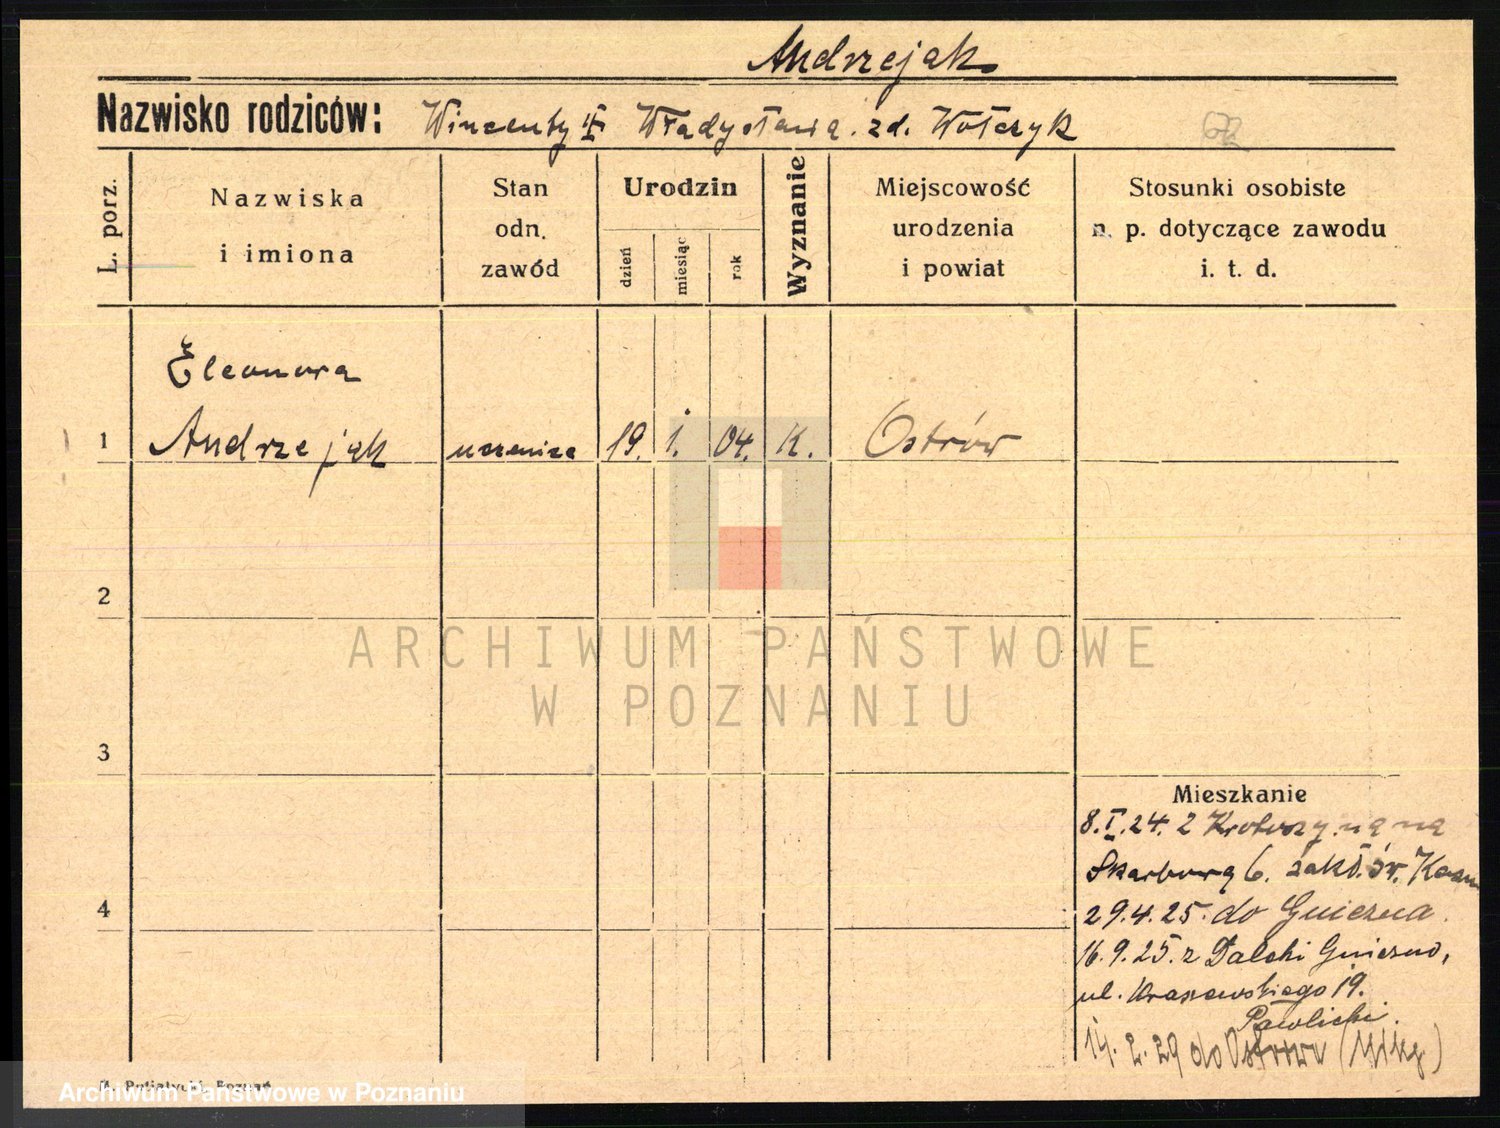 Andrzejak
Nazwisko rodziców: Wincenty i Władysława zd. Wołczyk
L. porz.
Nazwiska
i imiona
Stan
odn.
zawód
Urodzin
dzień
miesiąc
rok
Wyznanie
Miejscowość
urodzenia
i powiat
Stosunki osobiste
n. p. dotyczące zawodu
i. t. d.
Eleonora
1 Andrzejak uczenica 19. 1. 04. K. Ostrów
2
3
4
ARCHIWUM PAŃSTWOWE
W POZNANIU
Mieszkanie
8.I.24. z Krotoszyna na
Skarbową 6. zakł. św.
29.4.25. do Gniezna.
16.9.25. z Dalki Gniezno,
ul. Kraszewskiego 19.
Pawlicki.
14. 2. 29 do Ostrowa
Poznań
Archiwum Państwowe w Poznaniu